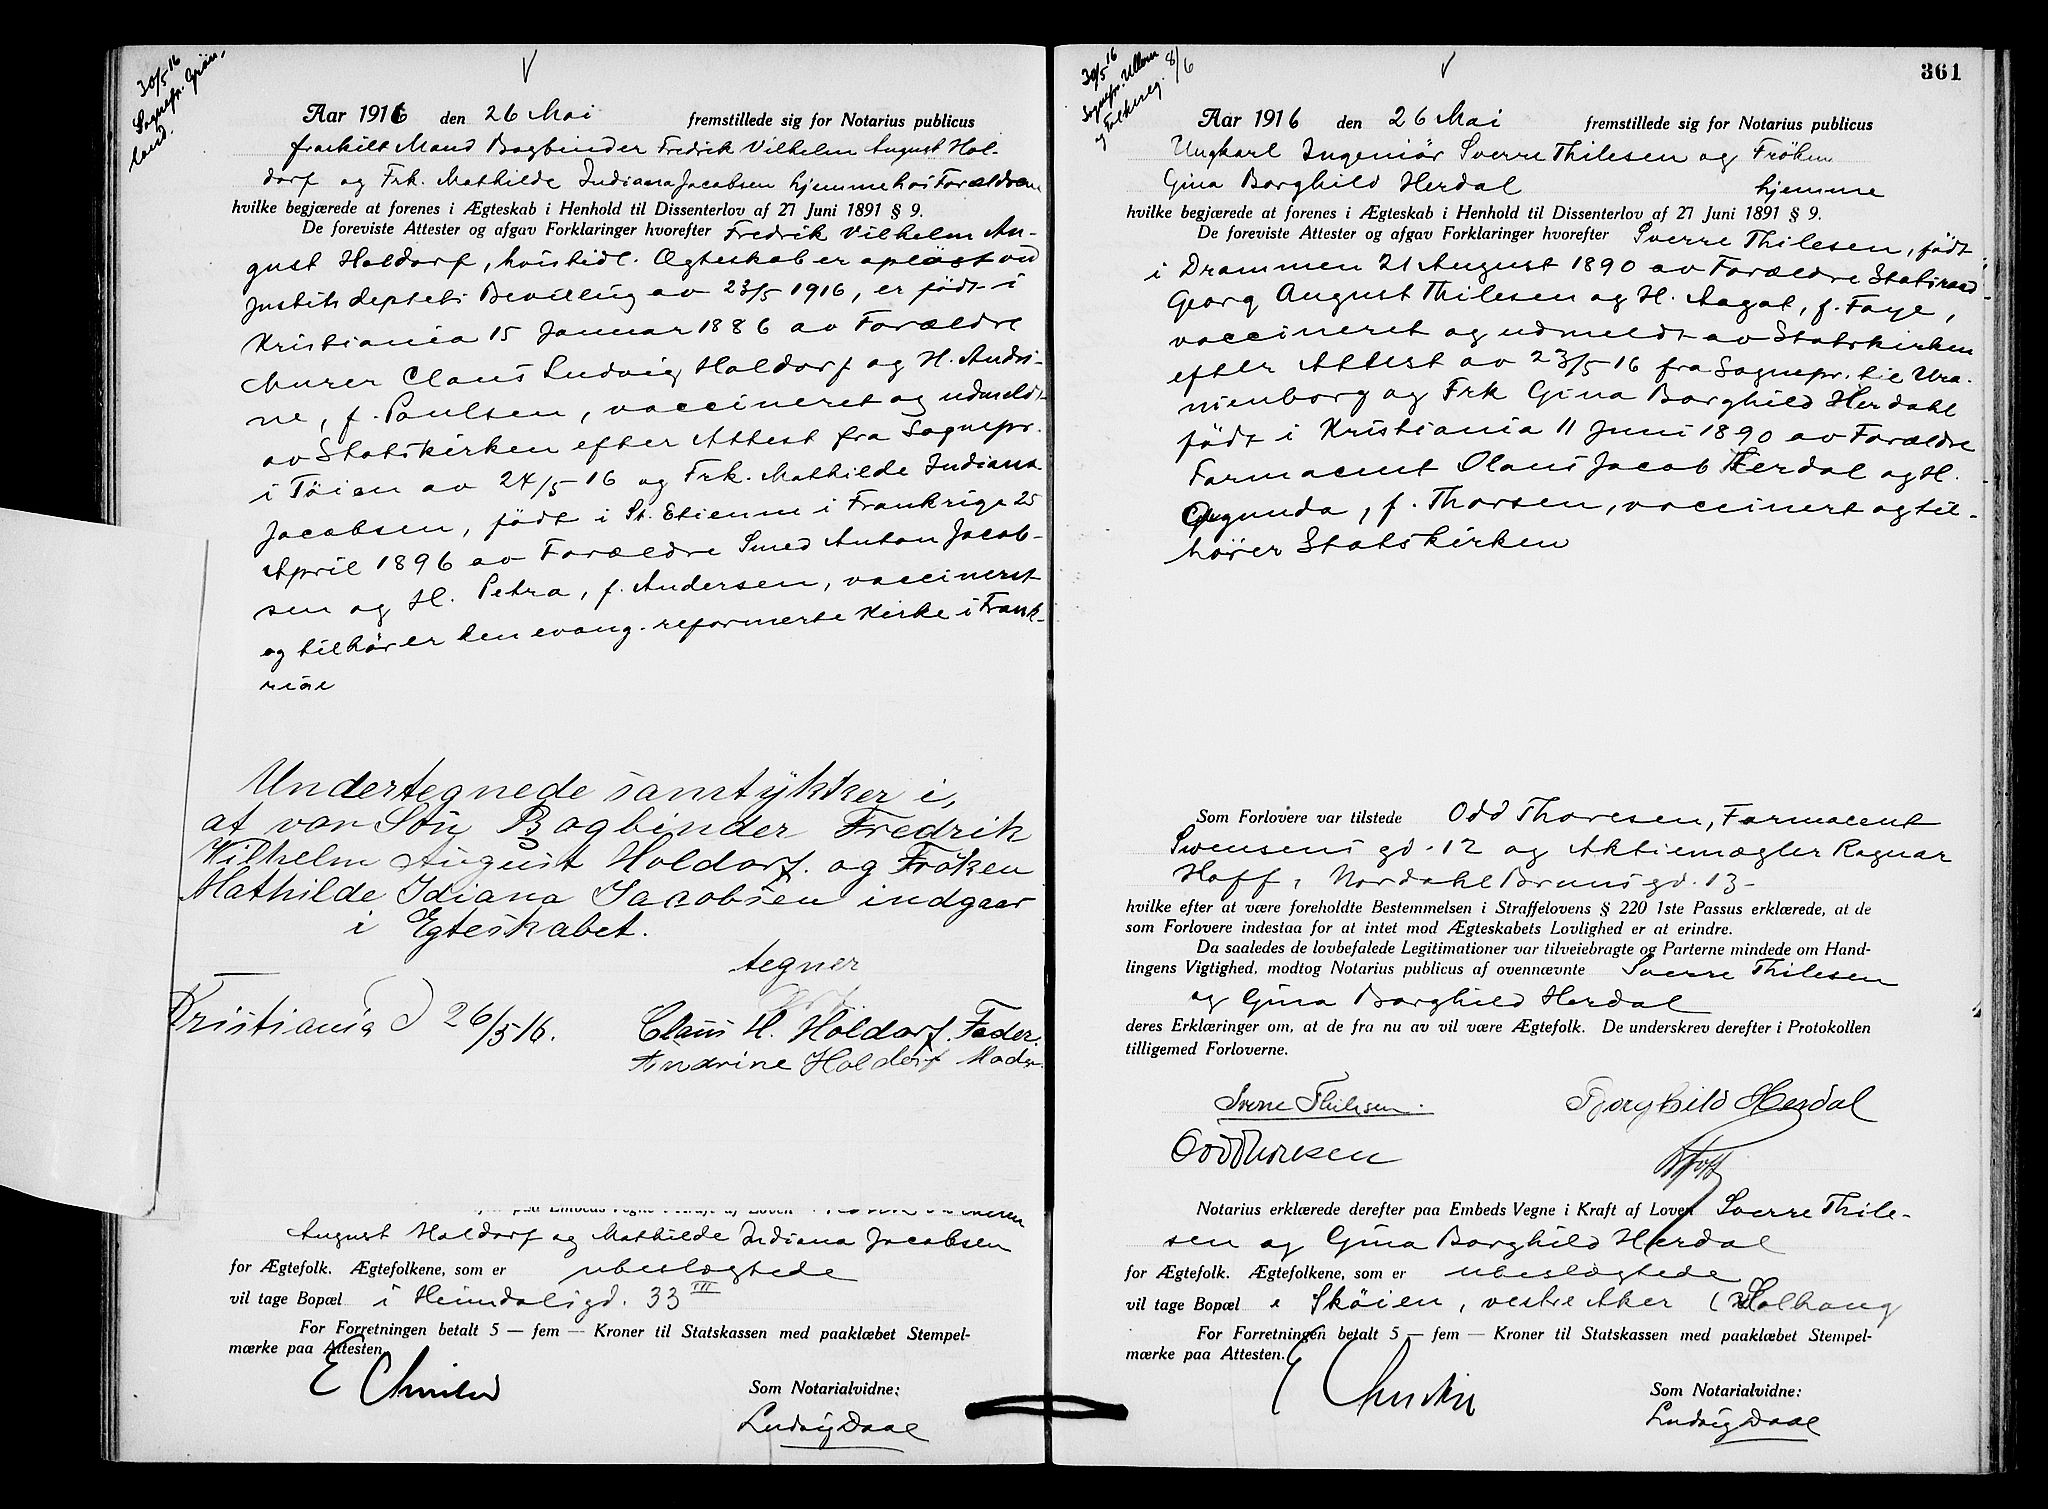 30/5 16
Sognepr. Grøn-
land.
V
Aar 1916 den 26 Mai fremstillede sig for Notarius publicus
fraskilt Mand Bogbinder Fredrik Vilhelm August Hol-
dorf og Frk. Mathilde Indiana Jacobsen hjemme hos Forældrene
hvilke begjærede at forenes i Ægteskab i Henhold til Dissenterlov af 27 Juni 1891 § 9.
De foreviste Attester og afgav Forklaringer hvorefter Fredrik Vilhelm Au-
gust Holdorf, hvis tidl. Ægteskab er opløst ved
Justitsdeptets Bevilling av 23/5 1916, er født i
Kristiania 15 Januar 1886 av Forældre
Murer Claus Ludvig Holdorf og H. Andri-
ne, f. Paulsen, vaccineret og udmeldt
av Statskirken efter Attest fra Sognepr.
i Tøien av 24/5 16 og Frk. Mathilde Indiana
Jacobsen, født i St. Etienne i Frankrige 25
April 1896 av Forældre Smed Anton Jacob-
sen og H. Petra, f. Andersen, vaccineret
og tilhører den evang. reformerte Kirke i Frank-
rige
Undertegnede samtykker i,
at vor Søn Bogbinder Fredrik
Wilhelm August Holdorf. og Frøken
Mathilde Idiana Jacobsen indgaar
i Egteskabet.
tegner
Kristiania d 26/5 16. Claus H. Holdorf. Fader.
Andrine Holdorf Moder.
paa Embeds Vegne i Kraft af Loven
August Holdorf og Mathilde Indiana Jacobsen
for Ægtefolk. Ægtefolkene, som er ubeslægtede
vil tage Bopæl i Heimdalsgd. 33 III
For Forretningen betalt 5 — fem — Kroner til Statskassen med paaklæbet Stempel-
mærke paa Attesten.
Som Notarialvidne:
Ludvig Daae
361
30/5 16
Sognepr. Ullern
og Folkereg. 8/6
V
Aar 1916 den 26 Mai fremstillede sig for Notarius publicus
Ungkarl Ingeniør Sverre Thilesen og Frøken
Gina Borghild Herdal hjemme
hvilke begjærede at forenes i Ægteskab i Henhold til Dissenterlov af 27 Juni 1891 § 9.
De foreviste Attester og afgav Forklaringer hvorefter Sverre Thilesen, født
i Drammen 21 August 1890 av Forældre Statsraad
Georg August Thilesen og H. Aagot, f. Faye,
vaccineret og udmeldt av Statskirken
efter Attest av 23/5 16 fra Sognepr. til Ura-
nienborg og Frk Gina Borghild Herdahl
født i Kristiania 11 Juni 1890 av Forældre
Farmaceut Olaus Jacob Herdal og H.
Gunda, f. Thorsen, vaccinert og til-
hører Statskirken
Som Forlovere var tilstede Odd Thoresen, Farmaceut
Svensens gd. 12 og Aktiemægler Ragnar
Hoff, Nordahl Bruns gd. 13-
hvilke efter at være foreholdte Bestemmelsen i Straffelovens § 220 1ste Passus erklærede, at de
som Forlovere indestaa for at intet mod Ægteskabets Lovlighed er at erindre.
Da saaledes de lovbefalede Legitimationer var tilveiebragte og Parterne mindede om Hand-
lingens Vigtighed, modtog Notarius publicus af ovennævnte Sverre Thilesen
og Gina Borghild Herdal
deres Erklæringer om, at de fra nu av vil være Ægtefolk. De underskrev derefter i Protokollen
tilligemed Forloverne.
Sverre Thilesen. Borghild Herdal
Odd Thoresen R Hoff
Notarius erklærede derefter paa Embeds Vegne i Kraft af Loven Sverre Thile-
sen og Gina Borghild Herdal
for Ægtefolk. Ægtefolkene, som er ubeslægtede
vil tage Bopæl i Skøien, vestre Aker (Solhaug
For Forretningen betalt 5 — fem — Kroner til Statskassen med paaklæbet Stempel-
mærke paa Attesten.
Som Notarialvidne:
Ludvig Daae